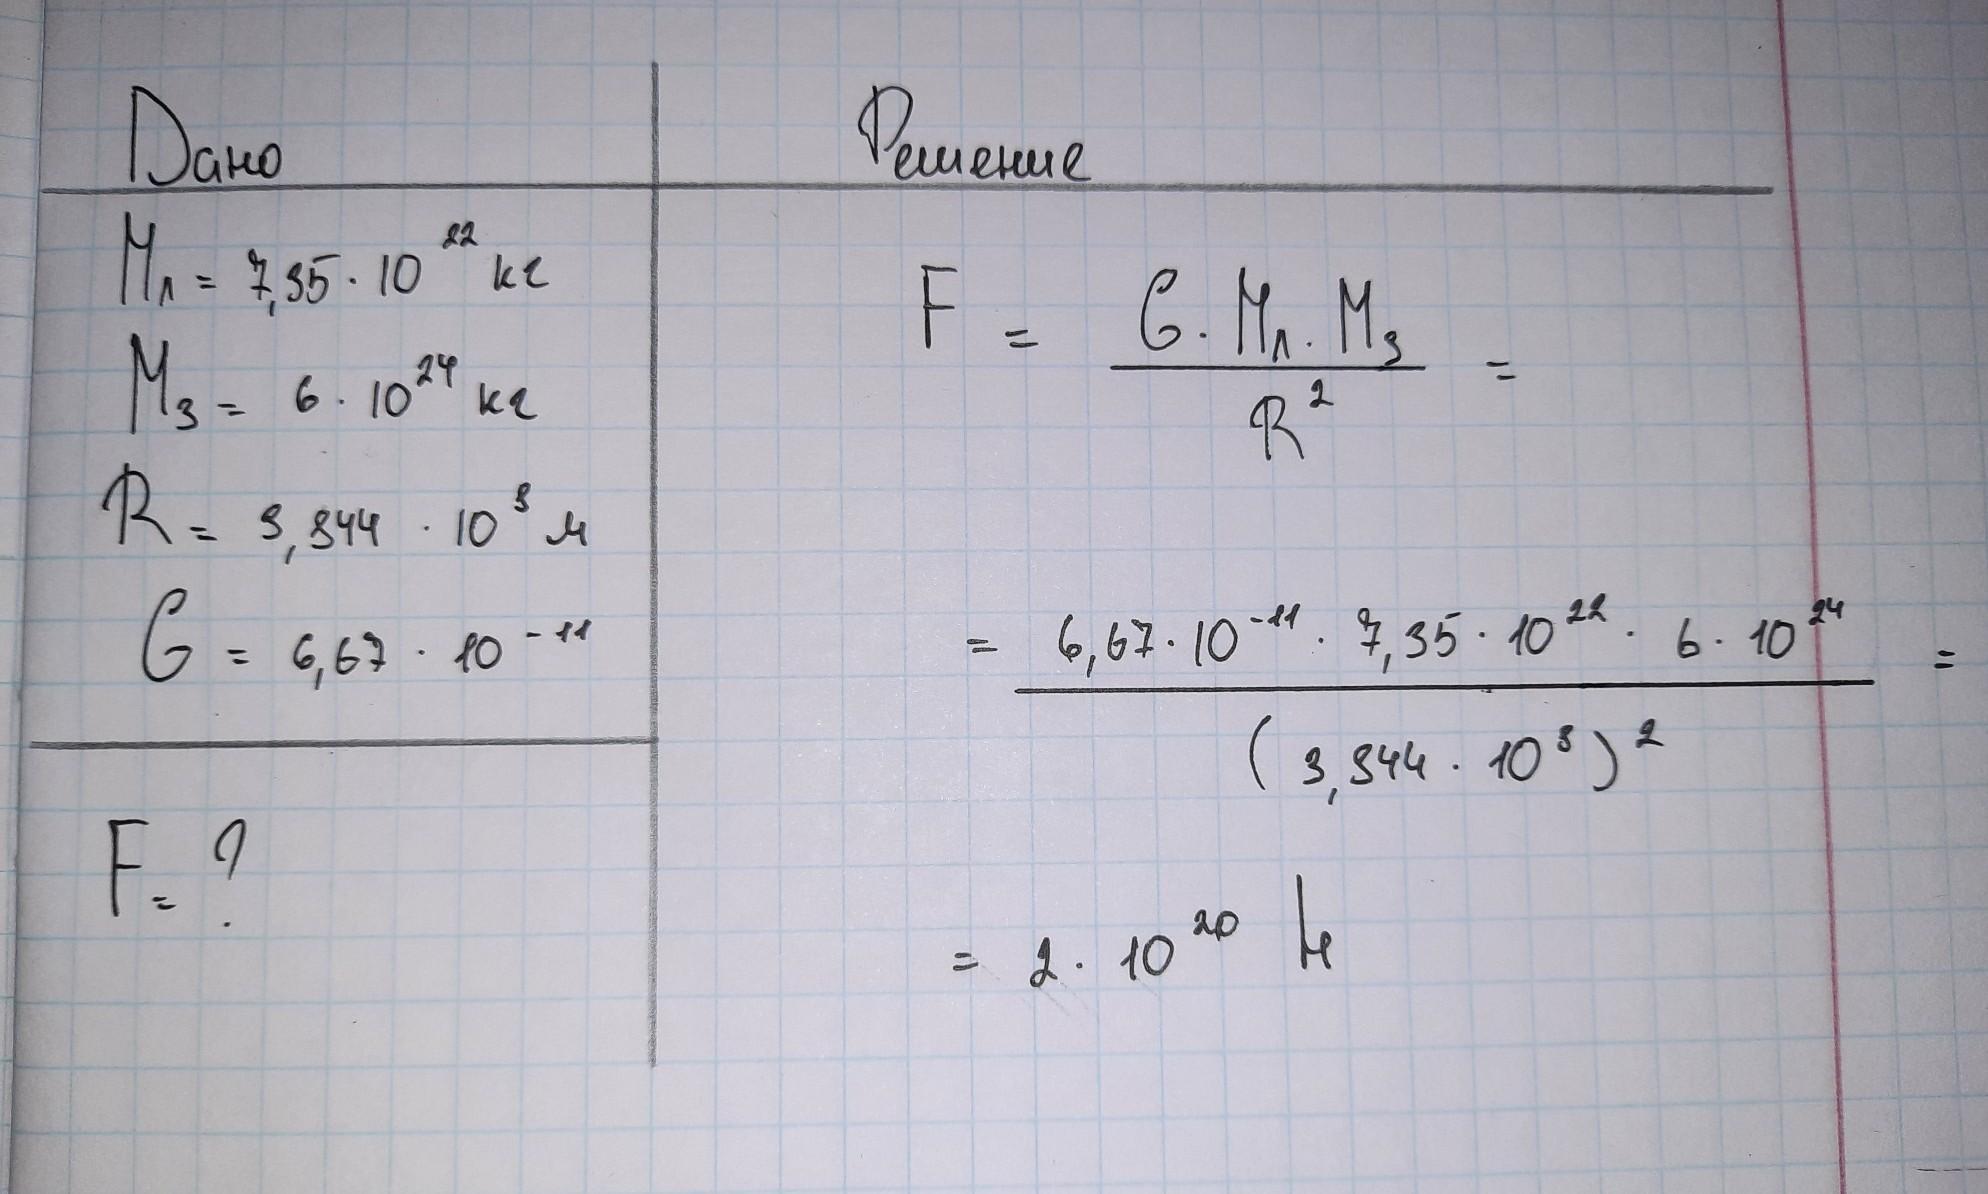 Дано
Решение
Mл = 7,35 · 10²² кг
Mз = 6 · 10²⁴ кг
R = 3,344 · 10³ м
G = 6,67 · 10⁻¹¹
F = ?
F = G · Mл · Mз =
R²
= 6,67 · 10⁻¹¹ · 7,35 · 10²² · 6 · 10²⁴ =
(3,344 · 10³)²
= 2 · 10²⁰ Н